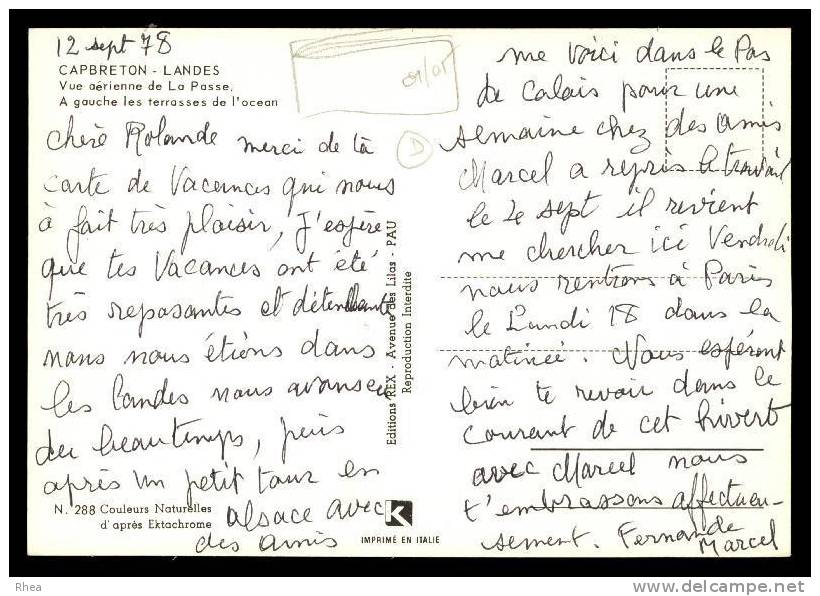 12 sept 78
CAPBRETON - LANDES
Vue aérienne de La Passe.
A gauche les terrasses de l'ocean
chère Rolande merci de ta
carte de Vacances qui nous
à fait très plaisir, J'espère
que tes Vacances ont été
très reposantes et détendante
nous nous étions dans
les Landes nous avons eu
du beautemps, puis
après un petit tour en
alsace avec
des amis
N. 288 Couleurs Naturelles
d'après Ektachrome
Editions REX - Avenue des Lilas - PAU
Reproduction Interdite
K
IMPRIMÉ EN ITALIE
D
me voici dans le Pas
de Calais pour une
semaine chez des amis
Marcel a repris le travail
le 4 sept il revient
me chercher ici Vendredi
nous rentrons à Paris
le Lundi 18 dans la
matineé. Nous espéront
bien te revoir dans le
courant de cet hivert
avec Marcel nous
t'embrassons affectueu-
sement. Fernande
Marcel
Rhea
www.delcampe.net